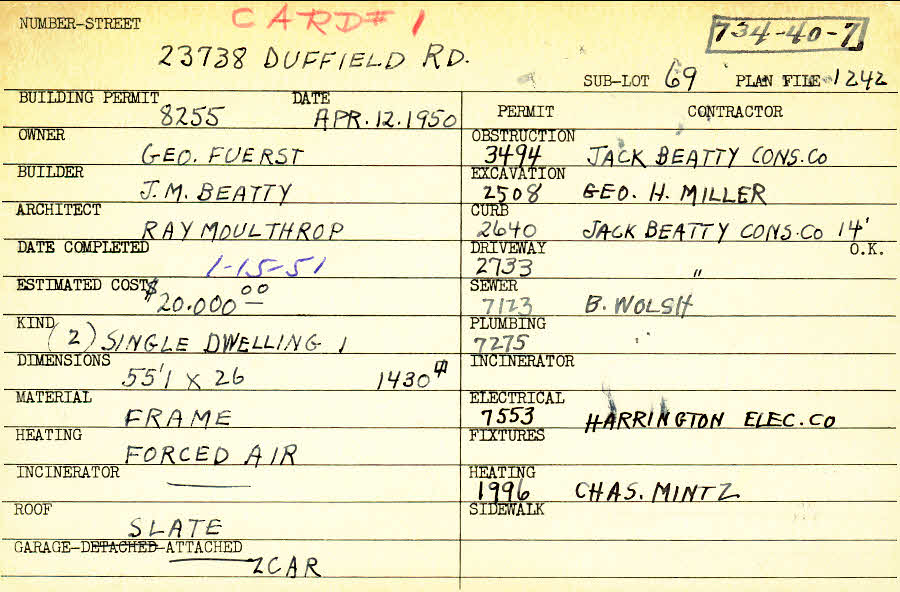 CARD# 1
NUMBER-STREET
734-40-7
23738 DUFFIELD RD.
SUB-LOT 69 PLAN FILE 1242
BUILDING PERMIT DATE
8255 APR. 12. 1950
PERMIT CONTRACTOR
OWNER
GEO. FUERST
OBSTRUCTION
3494 JACK BEATTY CONS. CO
BUILDER
J. M. BEATTY
EXCAVATION
2508 GEO. H. MILLER
ARCHITECT
RAY MOULTHROP
CURB
2640 JACK BEATTY CONS. CO 14'
O.K.
DATE COMPLETED
1-15-51
DRIVEWAY
2733 "
ESTIMATED COST
$20.000 00
SEWER
7123 B. WOLSH
KIND
(2) SINGLE DWELLING 1
PLUMBING
7275 "
DIMENSIONS
55'1 X 26 1430
INCINERATOR
MATERIAL
FRAME
ELECTRICAL
7553 HARRINGTON ELEC. CO
HEATING
FORCED AIR
FIXTURES
INCINERATOR
HEATING
1996 CHAS. MINTZ
ROOF
SLATE
SIDEWALK
GARAGE-DETACHED-ATTACHED
2 CAR